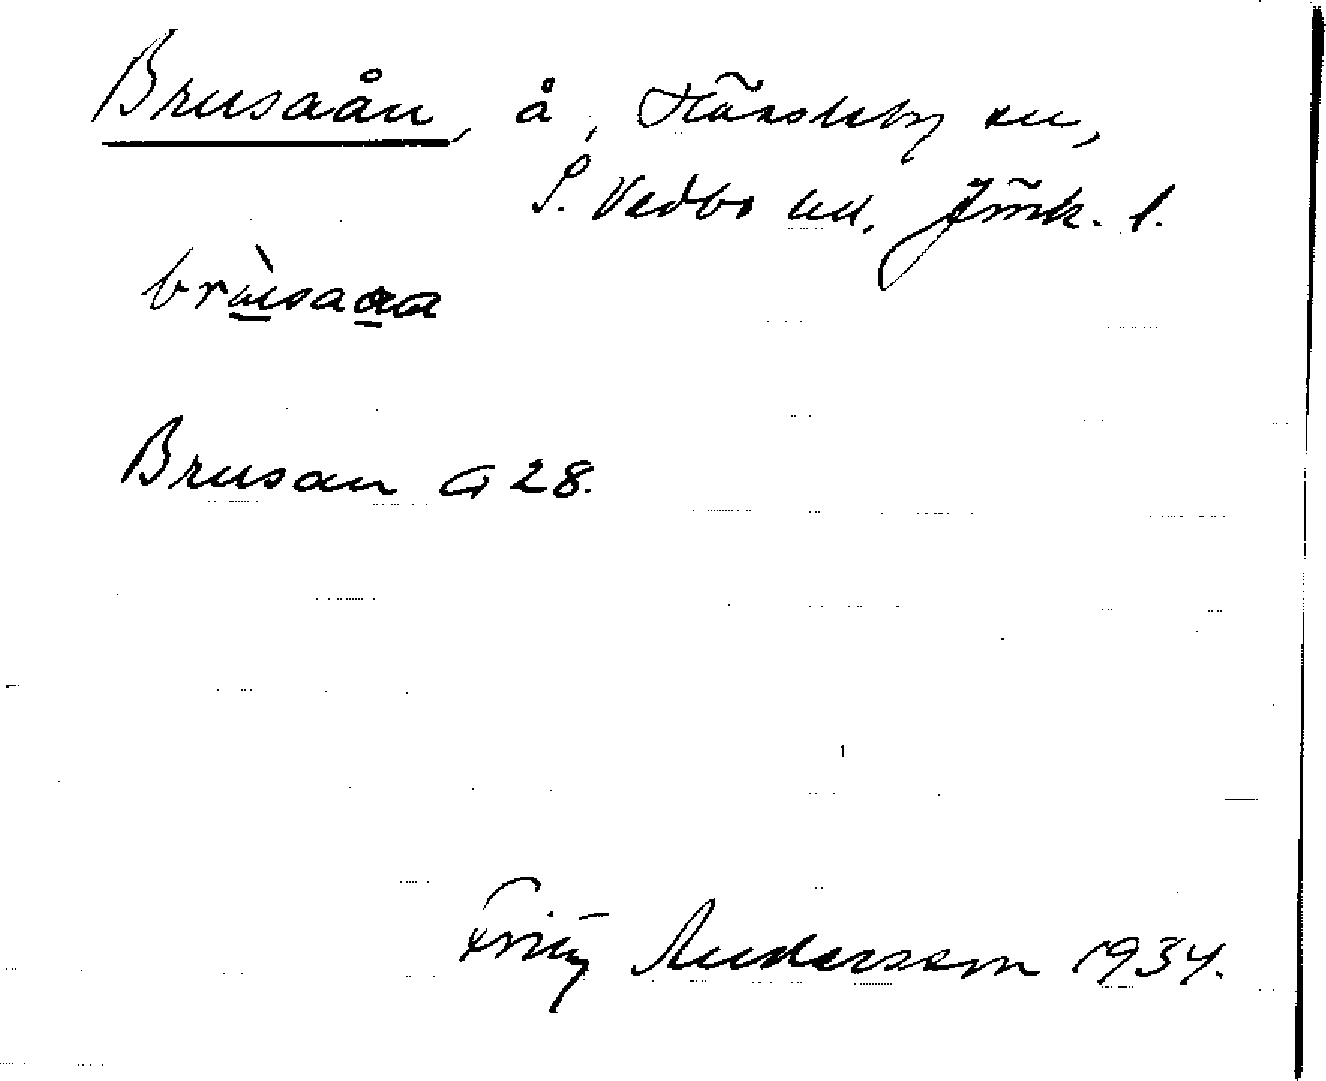 Brusaån, å, Hässleby sn,
S. Vedbo hd, Jönk. l.
Brusan G 28.
Fritz Andersson 1934.